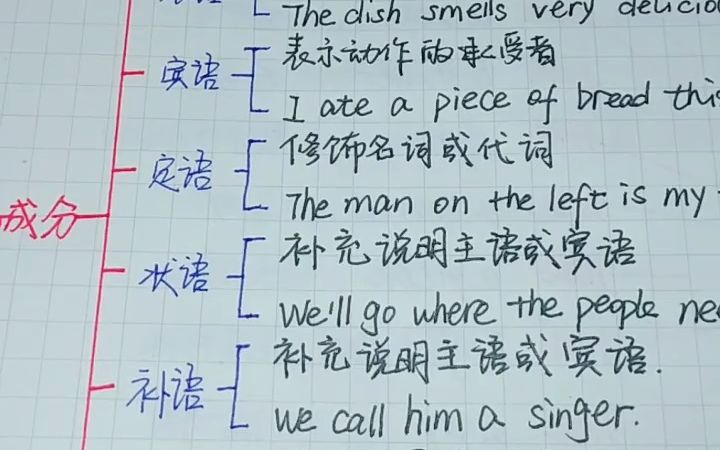 The dish smells very
宾语
表示动作的承受者
I ate a piece of bread
定语
修饰名词或代词
The man on the left is my
成分
状语
补充说明主语或宾语
We'll go where the people
补语
补充说明主语或宾语.
we call him a singer.